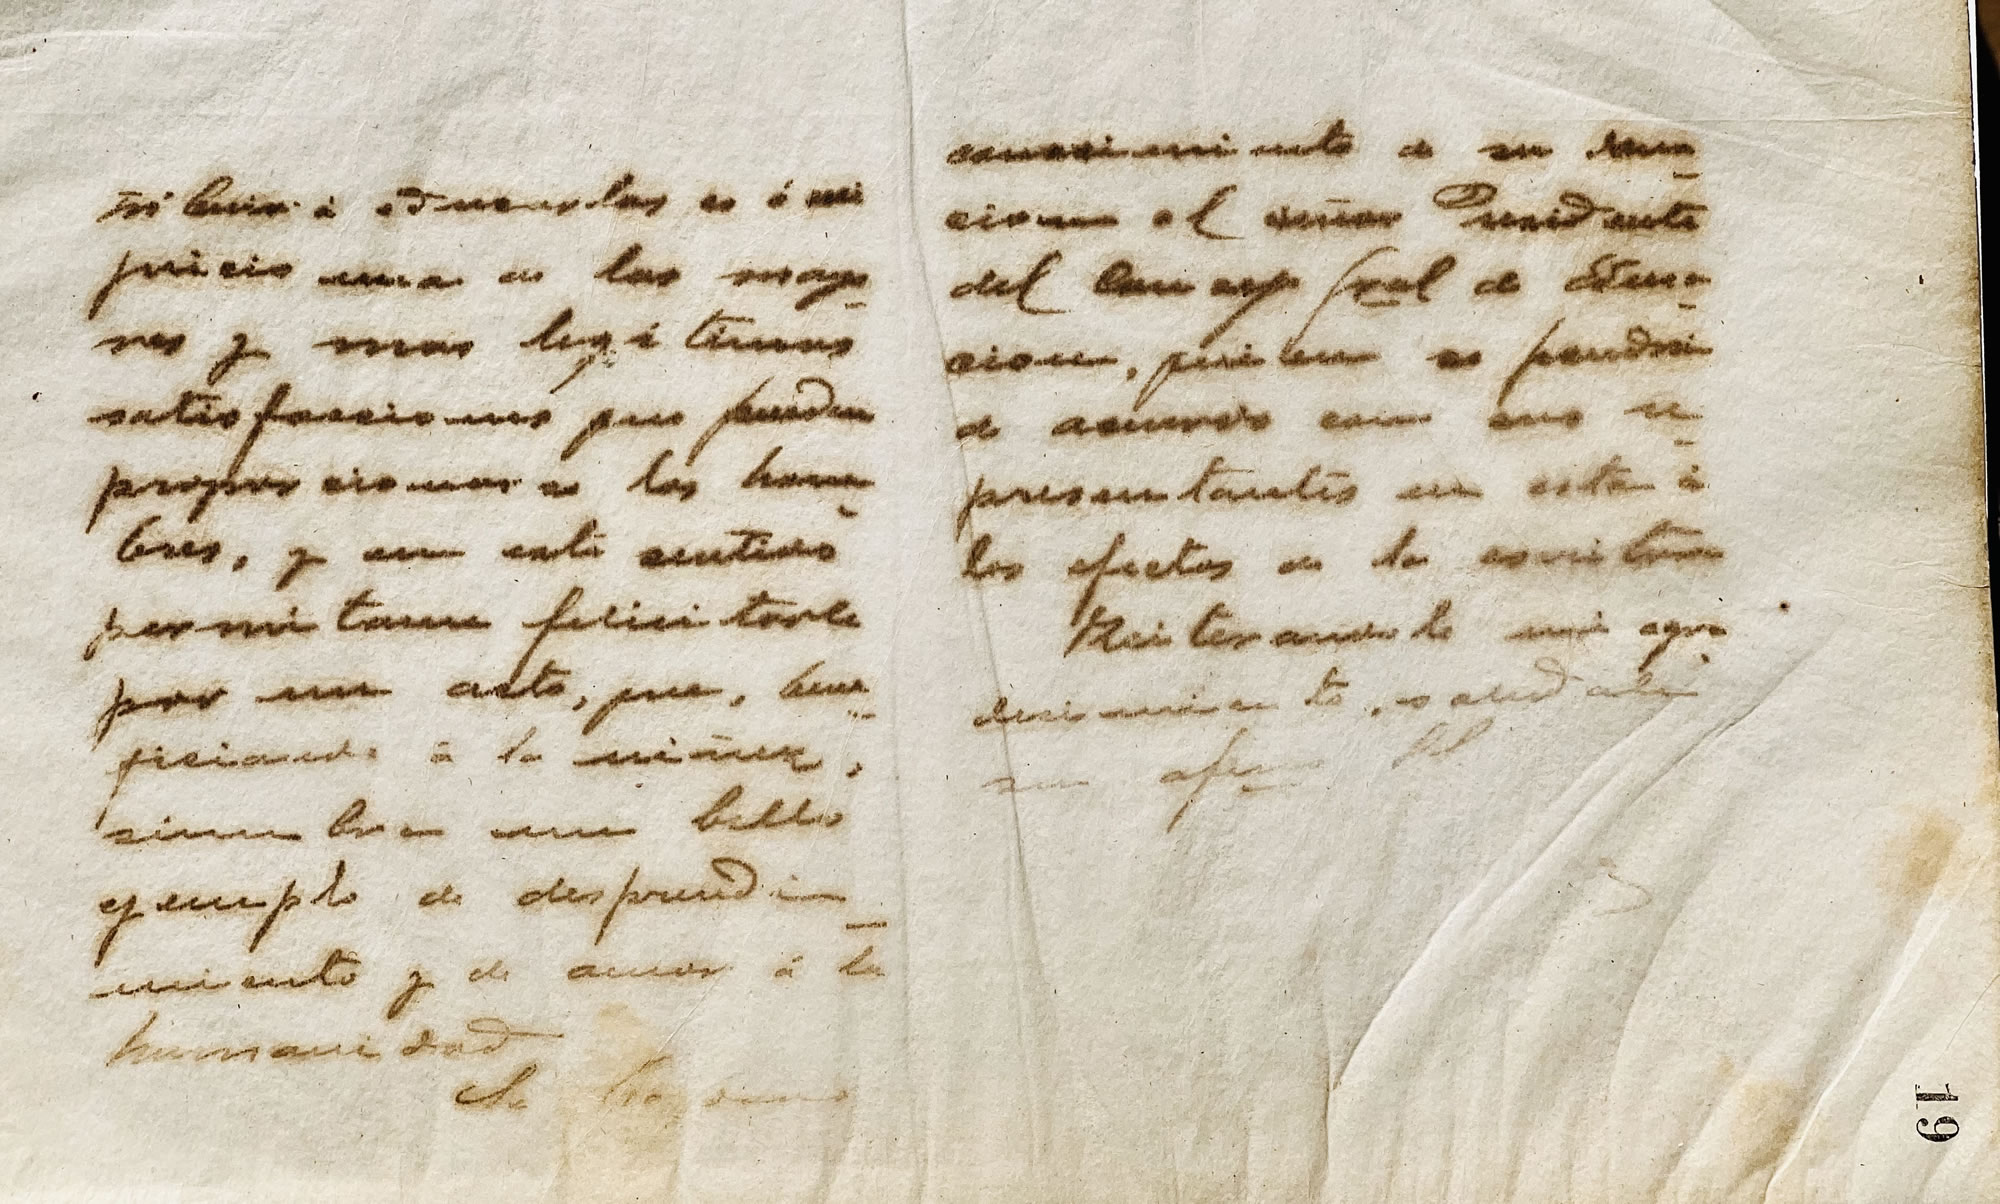 tribuir á educarlas es á mi
juicio una de las mayo-
res y mas legitimas
satisfacciones que pueden
proporcionarse los hom-
bres, y en este sentido
permitame felicitarle
por un acto, que, bene-
ficiando á la niñez,
siembra un bello
ejemplo de desprendi-
miento y de amor á la
humanidad
He
conocimiento de su dona-
cion al señor Presidente
del Consejo Gral de Educa-
cion, quien se pondrá
de acuerdo con sus re-
presentantes en esta á
los efectos de la escritura
Reiterandole mi agra-
decimiento, saludale
su afmo
19